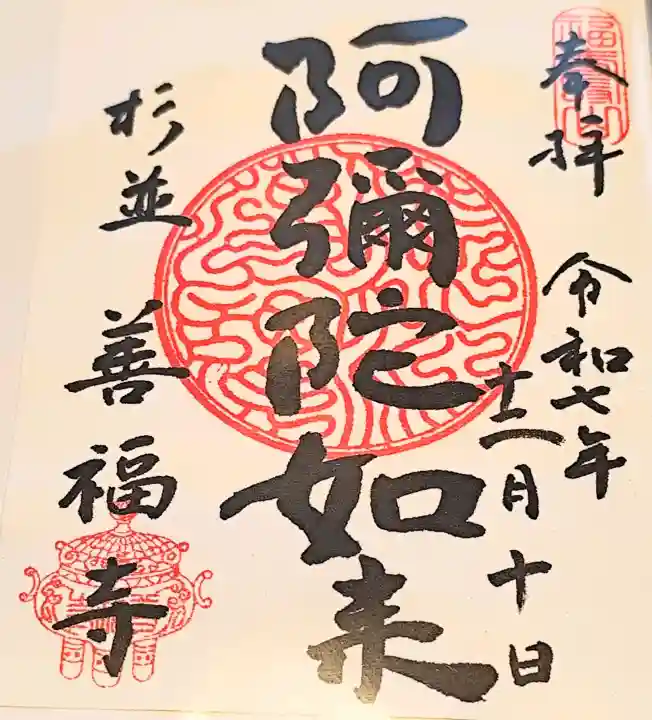 奉拝 令和七年
十二月十日
阿彌陀如来
杉並 善福寺